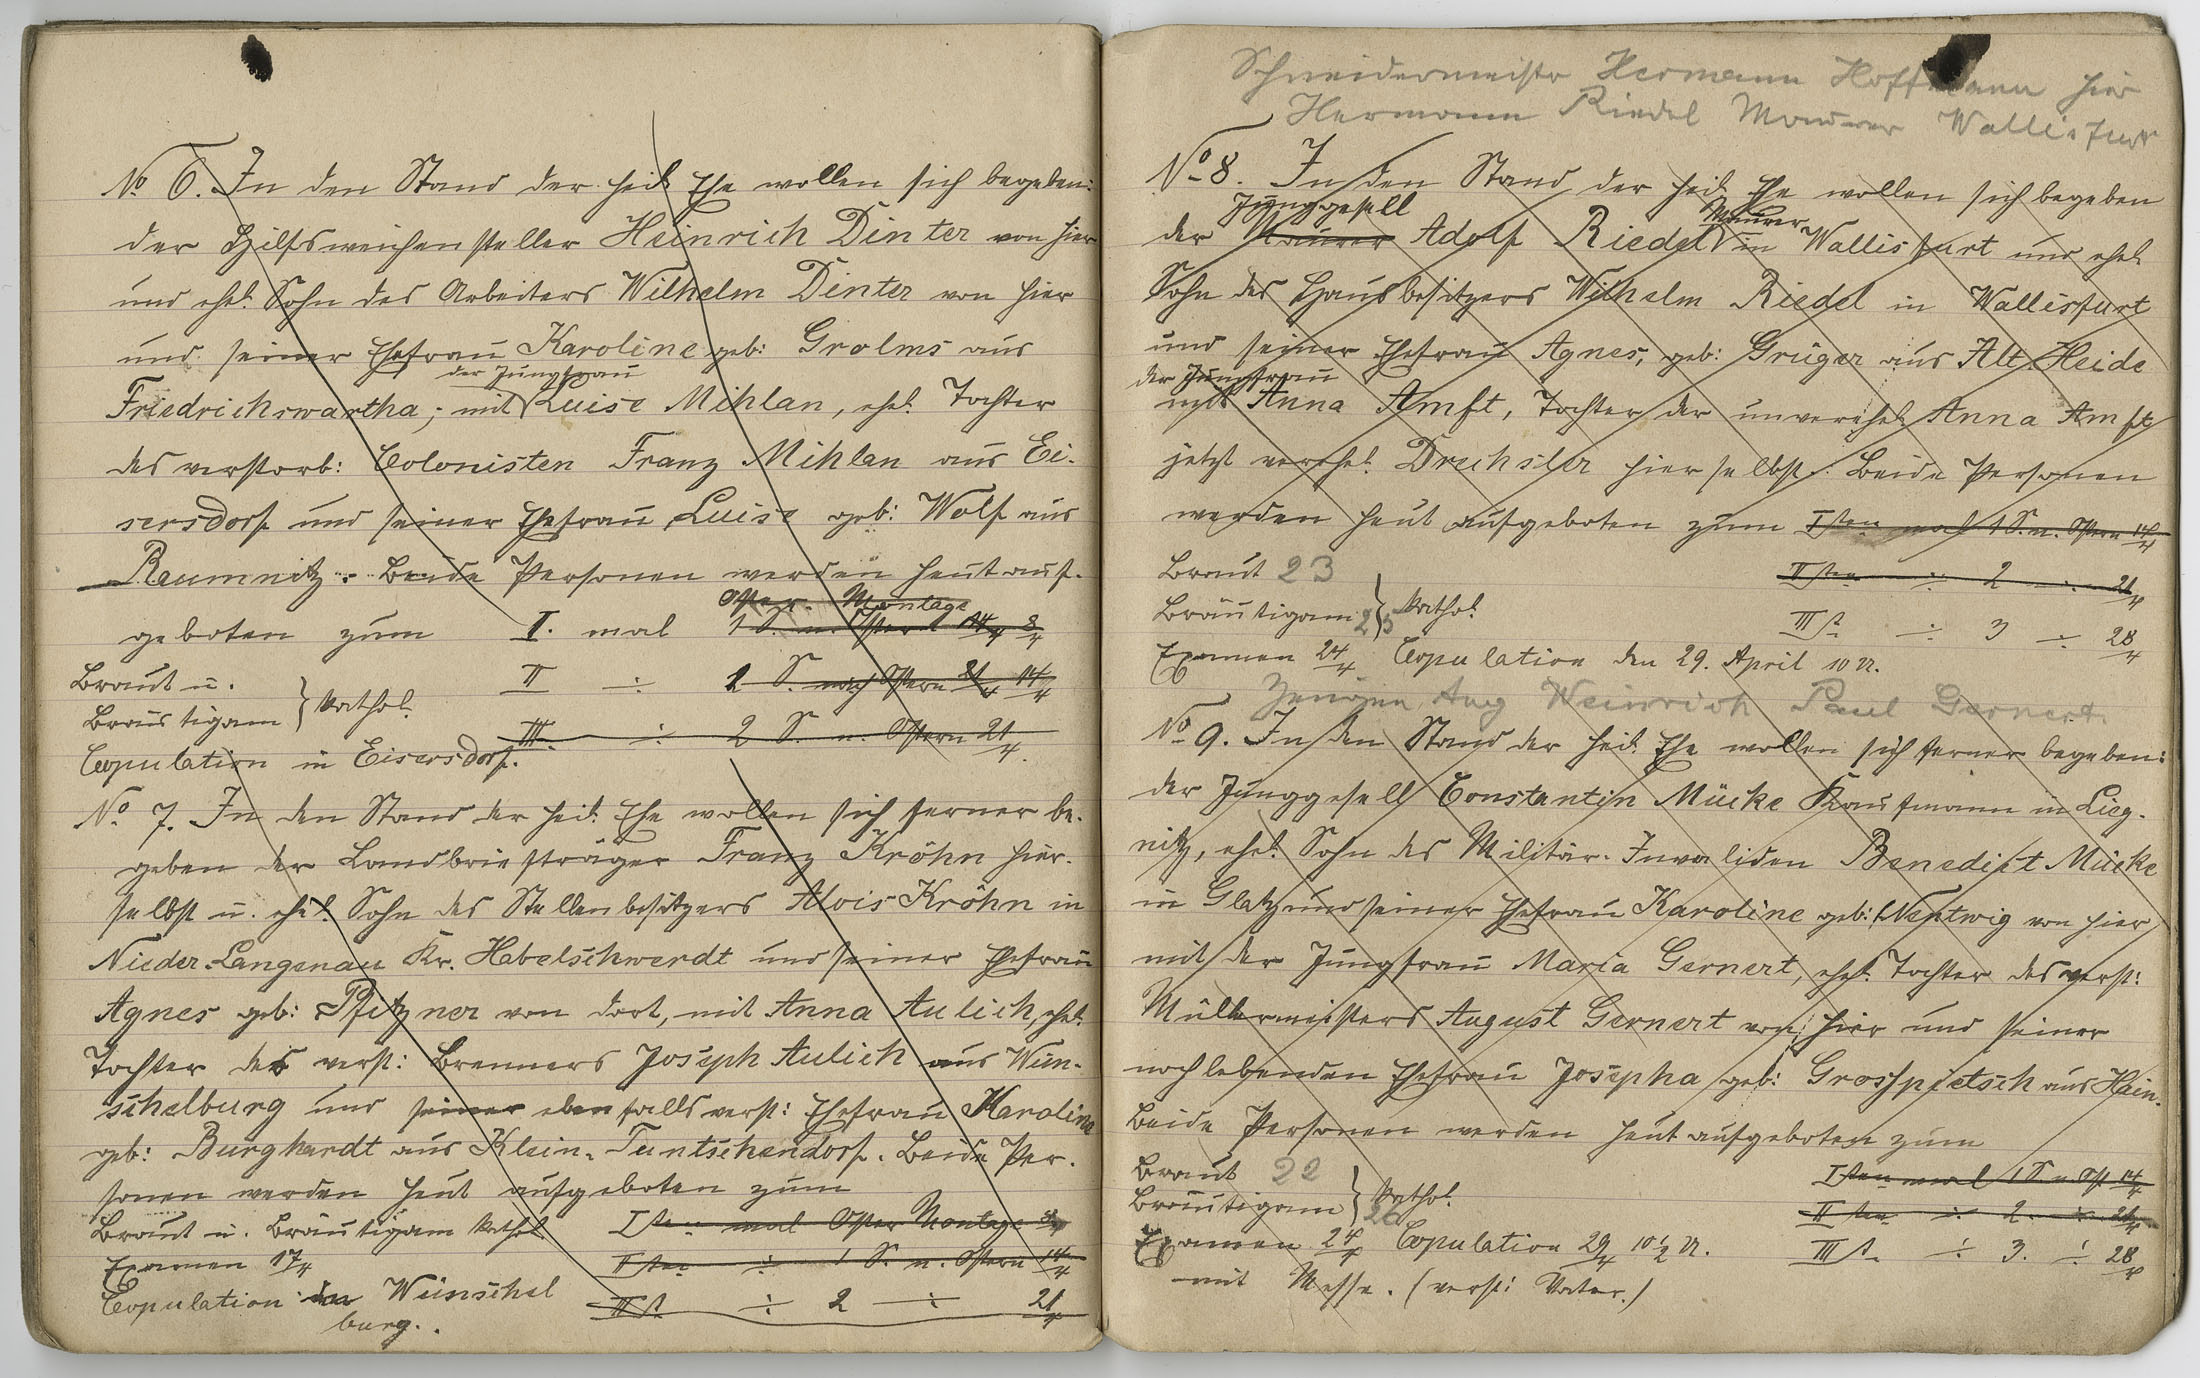 № 6. In den Stand der heil. Ehe wollen sich begeben:
der Hilfsweichensteller Heinrich Dinter von hier
und ehel. Sohn des Arbeiters Wilhelm Dinter von hier
und seiner Ehefrau Karoline geb: Grolms aus
der Jungfrau
Friedrichswartha, mit Luise Mihlan, ehel. Tochter
des verstorb: Colonisten Franz Mihlan aus Ei-
sersdorf und seiner Ehefrau Luise geb: Wolf aus
Reumnitz. Beide Personen werden heut auf-
Oster-Montage
geboten zum I. mal 1 S. n. Ostern 14/4 8/4
Braut u.
II ÷ 1 S. nach Ostern 21/4 14/4
Bräutigam } kathol.
III. ÷ 2 S. n. Ostern 21/4.
Copulation in Eisersdorf.
№ 7. In den Stand der heil. Ehe wollen sich ferner be-
geben der Landbriefträger Franz Kröhn hier-
selbst u. ehel. Sohn des Stellenbesitzers Alois Kröhn in
Nieder-Langenau Kr. Habelschwerdt und seiner Ehefrau
Agnes geb: Pfitzner von dort, mit Anna Aulich, ehel.
Tochter des verst: Brenners Joseph Aulich aus Wün-
schelburg und seiner ebenfalls verst: Ehefrau Karolina
geb: Burghardt aus Klein-Tuntschendorf. Beide Per-
sonen werden heut aufgeboten zum
Braut u. Bräutigam kathol.
Iten mal Oster Montage 8/4
Examen 17/4
IIten ÷ 1 S. n. Ostern 14/4
Copulation in Wünschel
burg.
III t. ÷ 2 ÷ 21/4
Schneidermeister Hermann Hoffmann hier
Hermann Riedel Maurer Wallisfurt
№ 8. In den Stand der heil. Ehe wollen sich begeben
Junggesell Maurer
der Maurer Adolf Riedel in Wallisfurt und ehel.
Sohn des Hausbesitzers Wilhelm Riedel in Wallisfurt
und seiner Ehefrau Agnes, geb: Grüger aus Alt Heide
der Jungfrau
mit Anna Amft, Tochter der unverehel. Anna Amft
jetzt verehel. Drechsler hierselbst. Beide Personen
werden heut aufgeboten zum Iten mal 1 S. n. Ostern 14/4
Braut 23
IIten ÷ 2 ÷ 21/4
Bräutigam 25 } kathol.
III t. ÷ 3 ÷ 28/4
Examen 24/4 Copulation den 29. April 10 U.
Zeugen Aug Weinrich Paul Gernert
№ 9. In den Stand der heil. Ehe wollen sich ferner begeben:
der Junggesell Constantin Mücke Kaufmann in Lieg-
nitz, ehel. Sohn des Militär-Invaliden Benedikt Mücke
in Glatz und seiner Ehefrau Karoline geb: Nentwig von hier
mit der Jungfrau Maria Gernert, ehel. Tochter des verst:
Müllermeisters August Gernert von hier und seiner
noch lebenden Ehefrau Josepha geb: Grosspietsch aus Hain.
Beide Personen werden heut aufgeboten zum
Braut 22
Iten mal 1 S. n. Ost 14/4
Bräutigam } kathol.
IIten ÷ 2. ÷ 21/4
Examen 24/4 Copulation 29/4 10 1/2 U.
III t. ÷ 3. ÷ 28/4
mit Messe. (verst: Vater.)